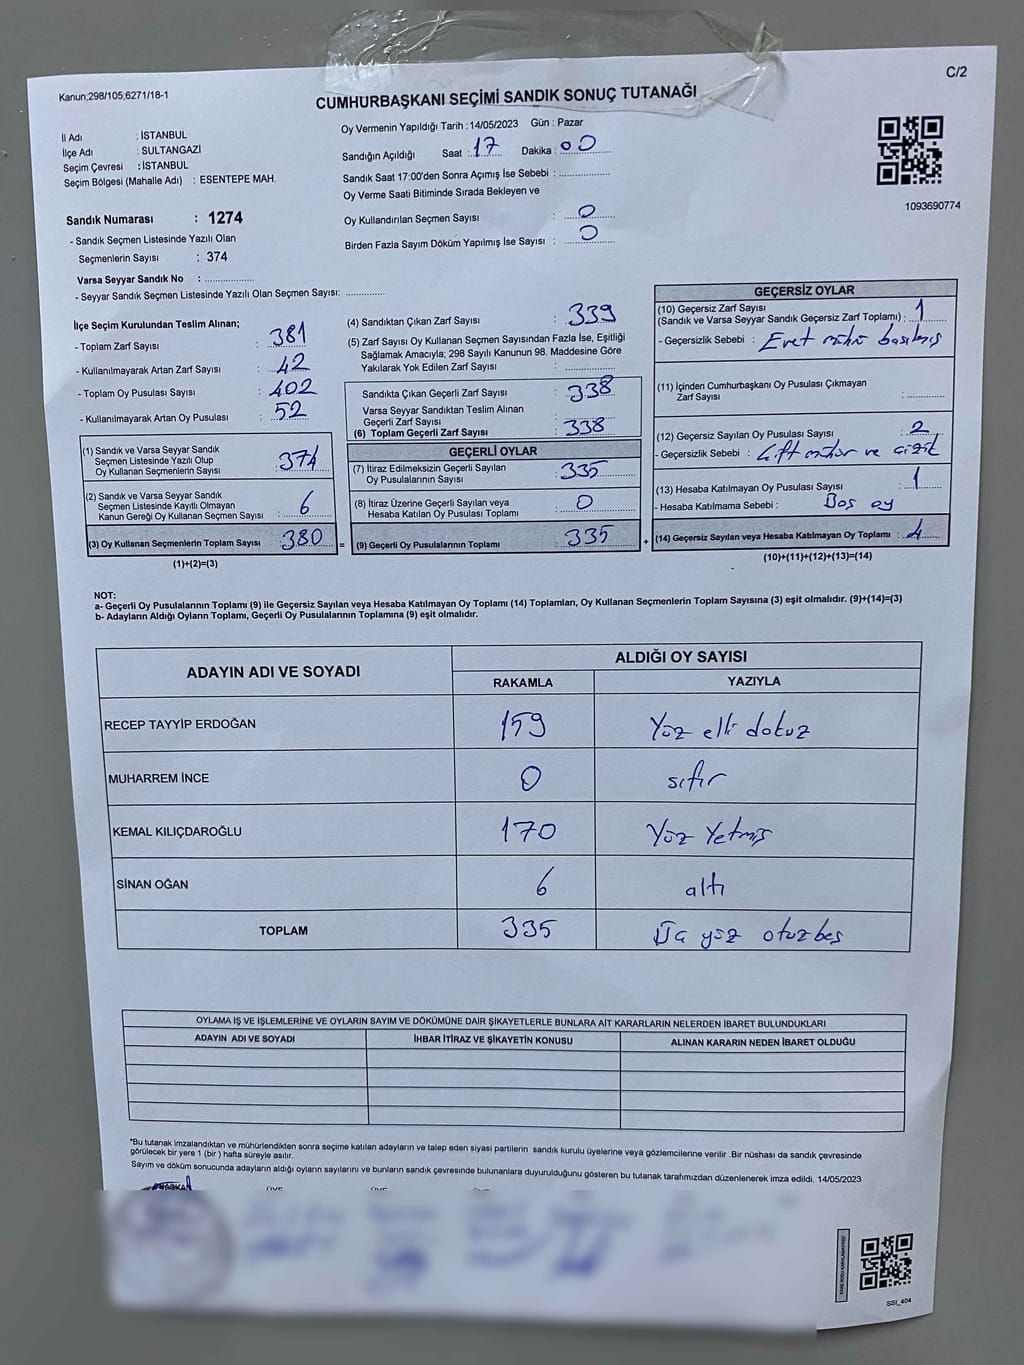 C/2
Kanun;298/105;6271/18-1
CUMHURBAŞKANI SEÇİMİ SANDIK SONUÇ TUTANAĞI
İl Adı : İSTANBUL
İlçe Adı : SULTANGAZİ
Seçim Çevresi : İSTANBUL
Seçim Bölgesi (Mahalle Adı) : ESENTEPE MAH.
Sandık Numarası : 1274
- Sandık Seçmen Listesinde Yazılı Olan
Seçmenlerin Sayısı : 374
Varsa Seyyar Sandık No : ................
- Seyyar Sandık Seçmen Listesinde Yazılı Olan Seçmen Sayısı: ............
Oy Vermenin Yapıldığı Tarih :14/05/2023 Gün : Pazar
Sandığın Açıldığı Saat : 17 Dakika : 00
Sandık Saat 17:00'den Sonra Açımış İse Sebebi : ................
Oy Verme Saati Bitiminde Sırada Bekleyen ve
Oy Kullandırılan Seçmen Sayısı : 0
Birden Fazla Sayım Döküm Yapılmış İse Sayısı : 0
1093690774
İlçe Seçim Kurulundan Teslim Alınan;
- Toplam Zarf Sayısı : 381
- Kullanılmayarak Artan Zarf Sayısı : 42
- Toplam Oy Pusulası Sayısı : 402
- Kullanılmayarak Artan Oy Pusulası : 52
(1) Sandık ve Varsa Seyyar Sandık
Seçmen Listesinde Yazılı Olup
Oy Kullanan Seçmenlerin Sayısı : 374
(2) Sandık ve Varsa Seyyar Sandık
Seçmen Listesinde Kayıtlı Olmayan
Kanun Gereği Oy Kullanan Seçmen Sayısı : 6
(3) Oy Kullanan Seçmenlerin Toplam Sayısı : 380 =
(1)+(2)=(3)
(4) Sandıktan Çıkan Zarf Sayısı : 339
(5) Zarf Sayısı Oy Kullanan Seçmen Sayısından Fazla İse, Eşitliği
Sağlamak Amacıyla; 298 Sayılı Kanunun 98. Maddesine Göre
Yakılarak Yok Edilen Zarf Sayısı : ................
Sandıkta Çıkan Geçerli Zarf Sayısı : 338
Varsa Seyyar Sandıktan Teslim Alınan
Geçerli Zarf Sayısı :
(6) Toplam Geçerli Zarf Sayısı : 338
GEÇERLİ OYLAR
(7) İtiraz Edilmeksizin Geçerli Sayılan
Oy Pusulalarının Sayısı : 335
(8) İtiraz Üzerine Geçerli Sayılan veya
Hesaba Katılan Oy Pusulası Toplamı : 0
(9) Geçerli Oy Pusulalarının Toplamı : 335 +
GEÇERSİZ OYLAR
(10) Geçersiz Zarf Sayısı
(Sandık ve Varsa Seyyar Sandık Geçersiz Zarf Toplamı) : 1
- Geçersizlik Sebebi : Evet mührü basılmış
(11) İçinden Cumhurbaşkanı Oy Pusulası Çıkmayan
Zarf Sayısı : ............
(12) Geçersiz Sayılan Oy Pusulası Sayısı : 2
- Geçersizlik Sebebi : Çift mühür ve çizik
(13) Hesaba Katılmayan Oy Pusulası Sayısı : 1
- Hesaba Katılmama Sebebi : Boş oy
(14) Geçersiz Sayılan veya Hesaba Katılmayan Oy Toplamı : 4
(10)+(11)+(12)+(13)=(14)
NOT:
a- Geçerli Oy Pusulalarının Toplamı (9) ile Geçersiz Sayılan veya Hesaba Katılmayan Oy Toplamı (14) Toplamları, Oy Kullanan Seçmenlerin Toplam Sayısına (3) eşit olmalıdır. (9)+(14)=(3)
b- Adayların Aldığı Oyların Toplamı, Geçerli Oy Pusulalarının Toplamına (9) eşit olmalıdır.
ADAYIN ADI VE SOYADI ALDIĞI OY SAYISI
RAKAMLA YAZIYLA
RECEP TAYYİP ERDOĞAN 159 Yüz elli dokuz
MUHARREM İNCE 0 sıfır
KEMAL KILIÇDAROĞLU 170 Yüz Yetmiş
SİNAN OĞAN 6 altı
TOPLAM 335 Üç yüz otuz beş
OYLAMA İŞ VE İŞLEMLERİNE VE OYLARIN SAYIM VE DÖKÜMÜNE DAİR ŞİKAYETLERLE BUNLARA AİT KARARLARIN NELERDEN İBARET BULUNDUKLARI
ADAYIN ADI VE SOYADI İHBAR İTİRAZ VE ŞİKAYETİN KONUSU ALINAN KARARIN NEDEN İBARET OLDUĞU
*Bu tutanak imzalandıktan ve mühürlendikten sonra seçime katılan adayların ve talep eden siyasi partilerin sandık kurulu üyelerine veya gözlemcilerine verilir .Bir nüshası da sandık çevresinde
görülecek bir yere 1 (bir ) hafta süreyle asılır.
Sayım ve döküm sonucunda adayların aldığı oyların sayılarını ve bunların sandık çevresinde bulunanlara duyurulduğunu gösteren bu tutanak tarafımızdan düzenlenerek imza edildi. 14/05/2023
BAŞKAN ÜYE ÜYE ÜYE
SSI_404